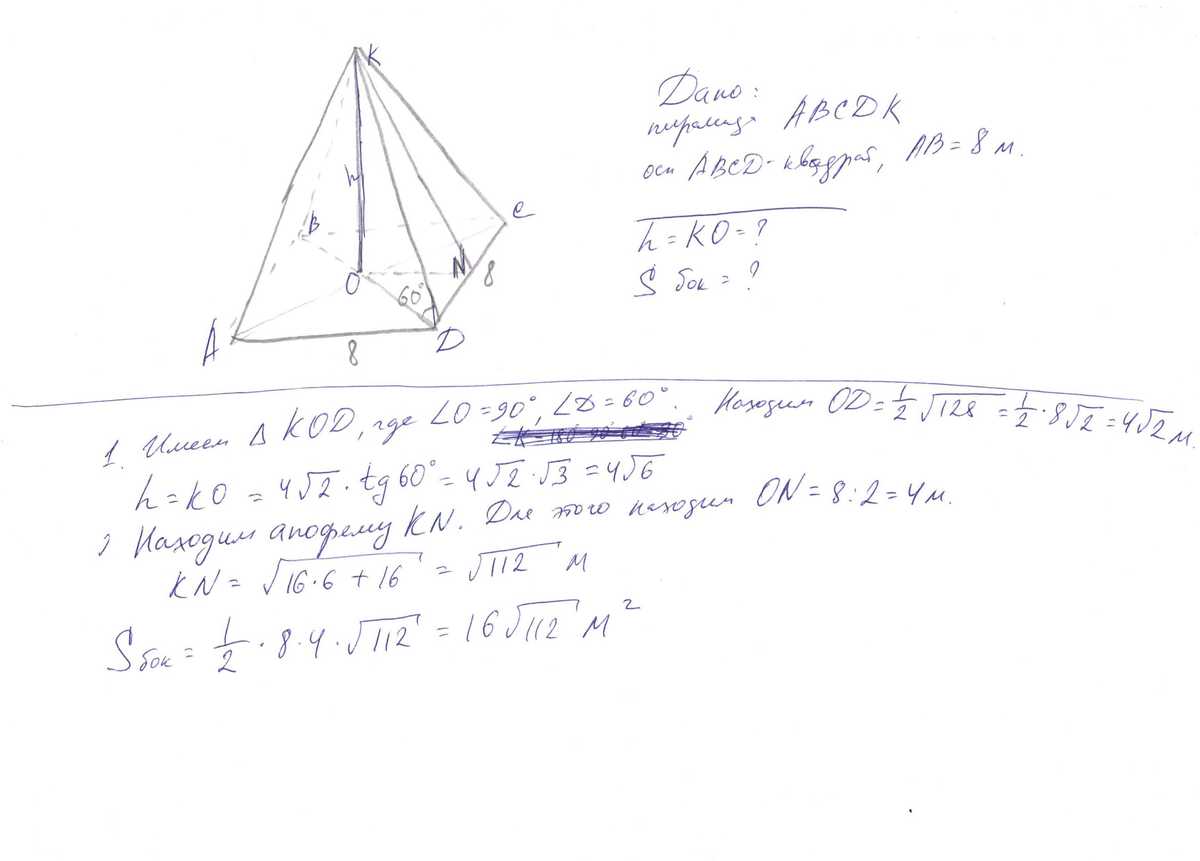 K
h
B
C
O
N
8
60°
A
8
D
Дано:
пирамида ABCDK
осн ABCD - квадрат, AB = 8 м.
h = KO = ?
S бок = ?
1. Имеем Δ KOD, где ∠O = 90°, ∠D = 60°. Находим OD = 1/2 √128 = 1/2 · 8√2 = 4√2 м.
h = KO = 4√2 · tg 60° = 4√2 · √3 = 4√6
2 Находим апофему KN. Для этого находим ON = 8 : 2 = 4 м.
KN = √(16·6 + 16) = √112 м
S бок = 1/2 · 8 · 4 · √112 = 16√112 м²